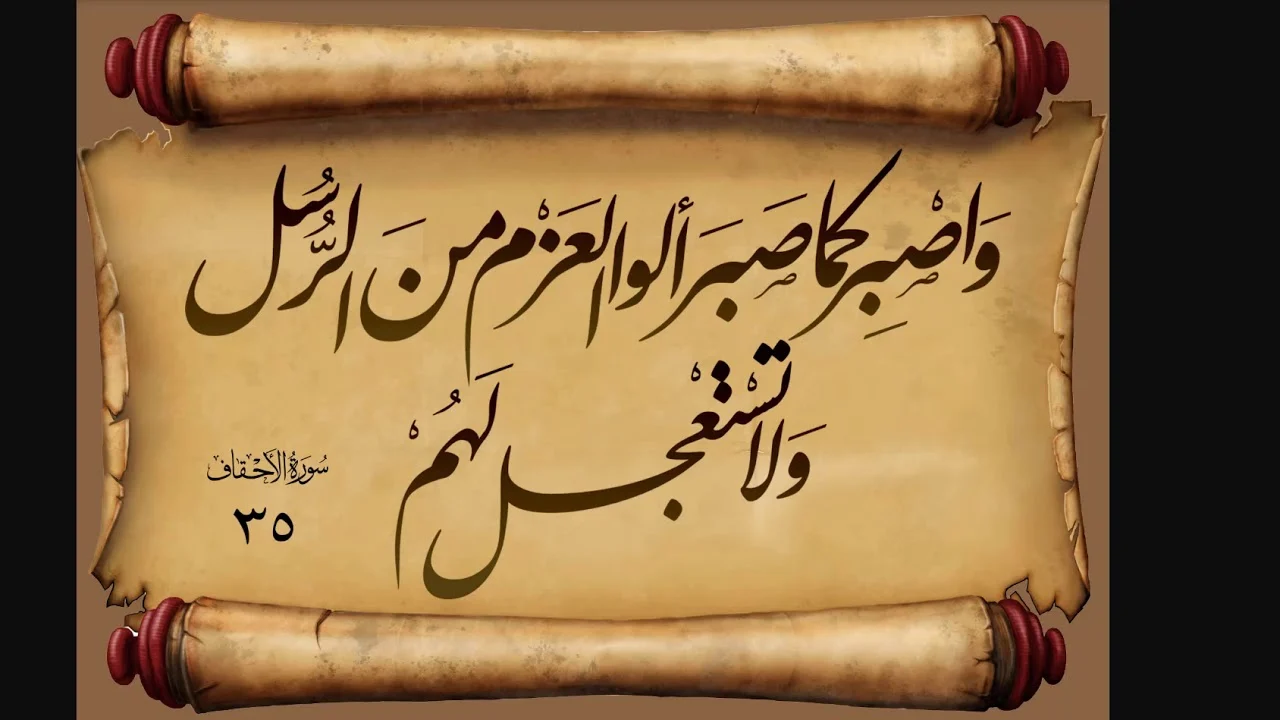 وَاصْبِر كَمَا صَبَرَ أُلوا العَزْمِ مِنَ الرُّسُل
وَلا تَسْتَعْجِل لَهُمْ
سُورَةُ الأَحْقَاف
٣٥